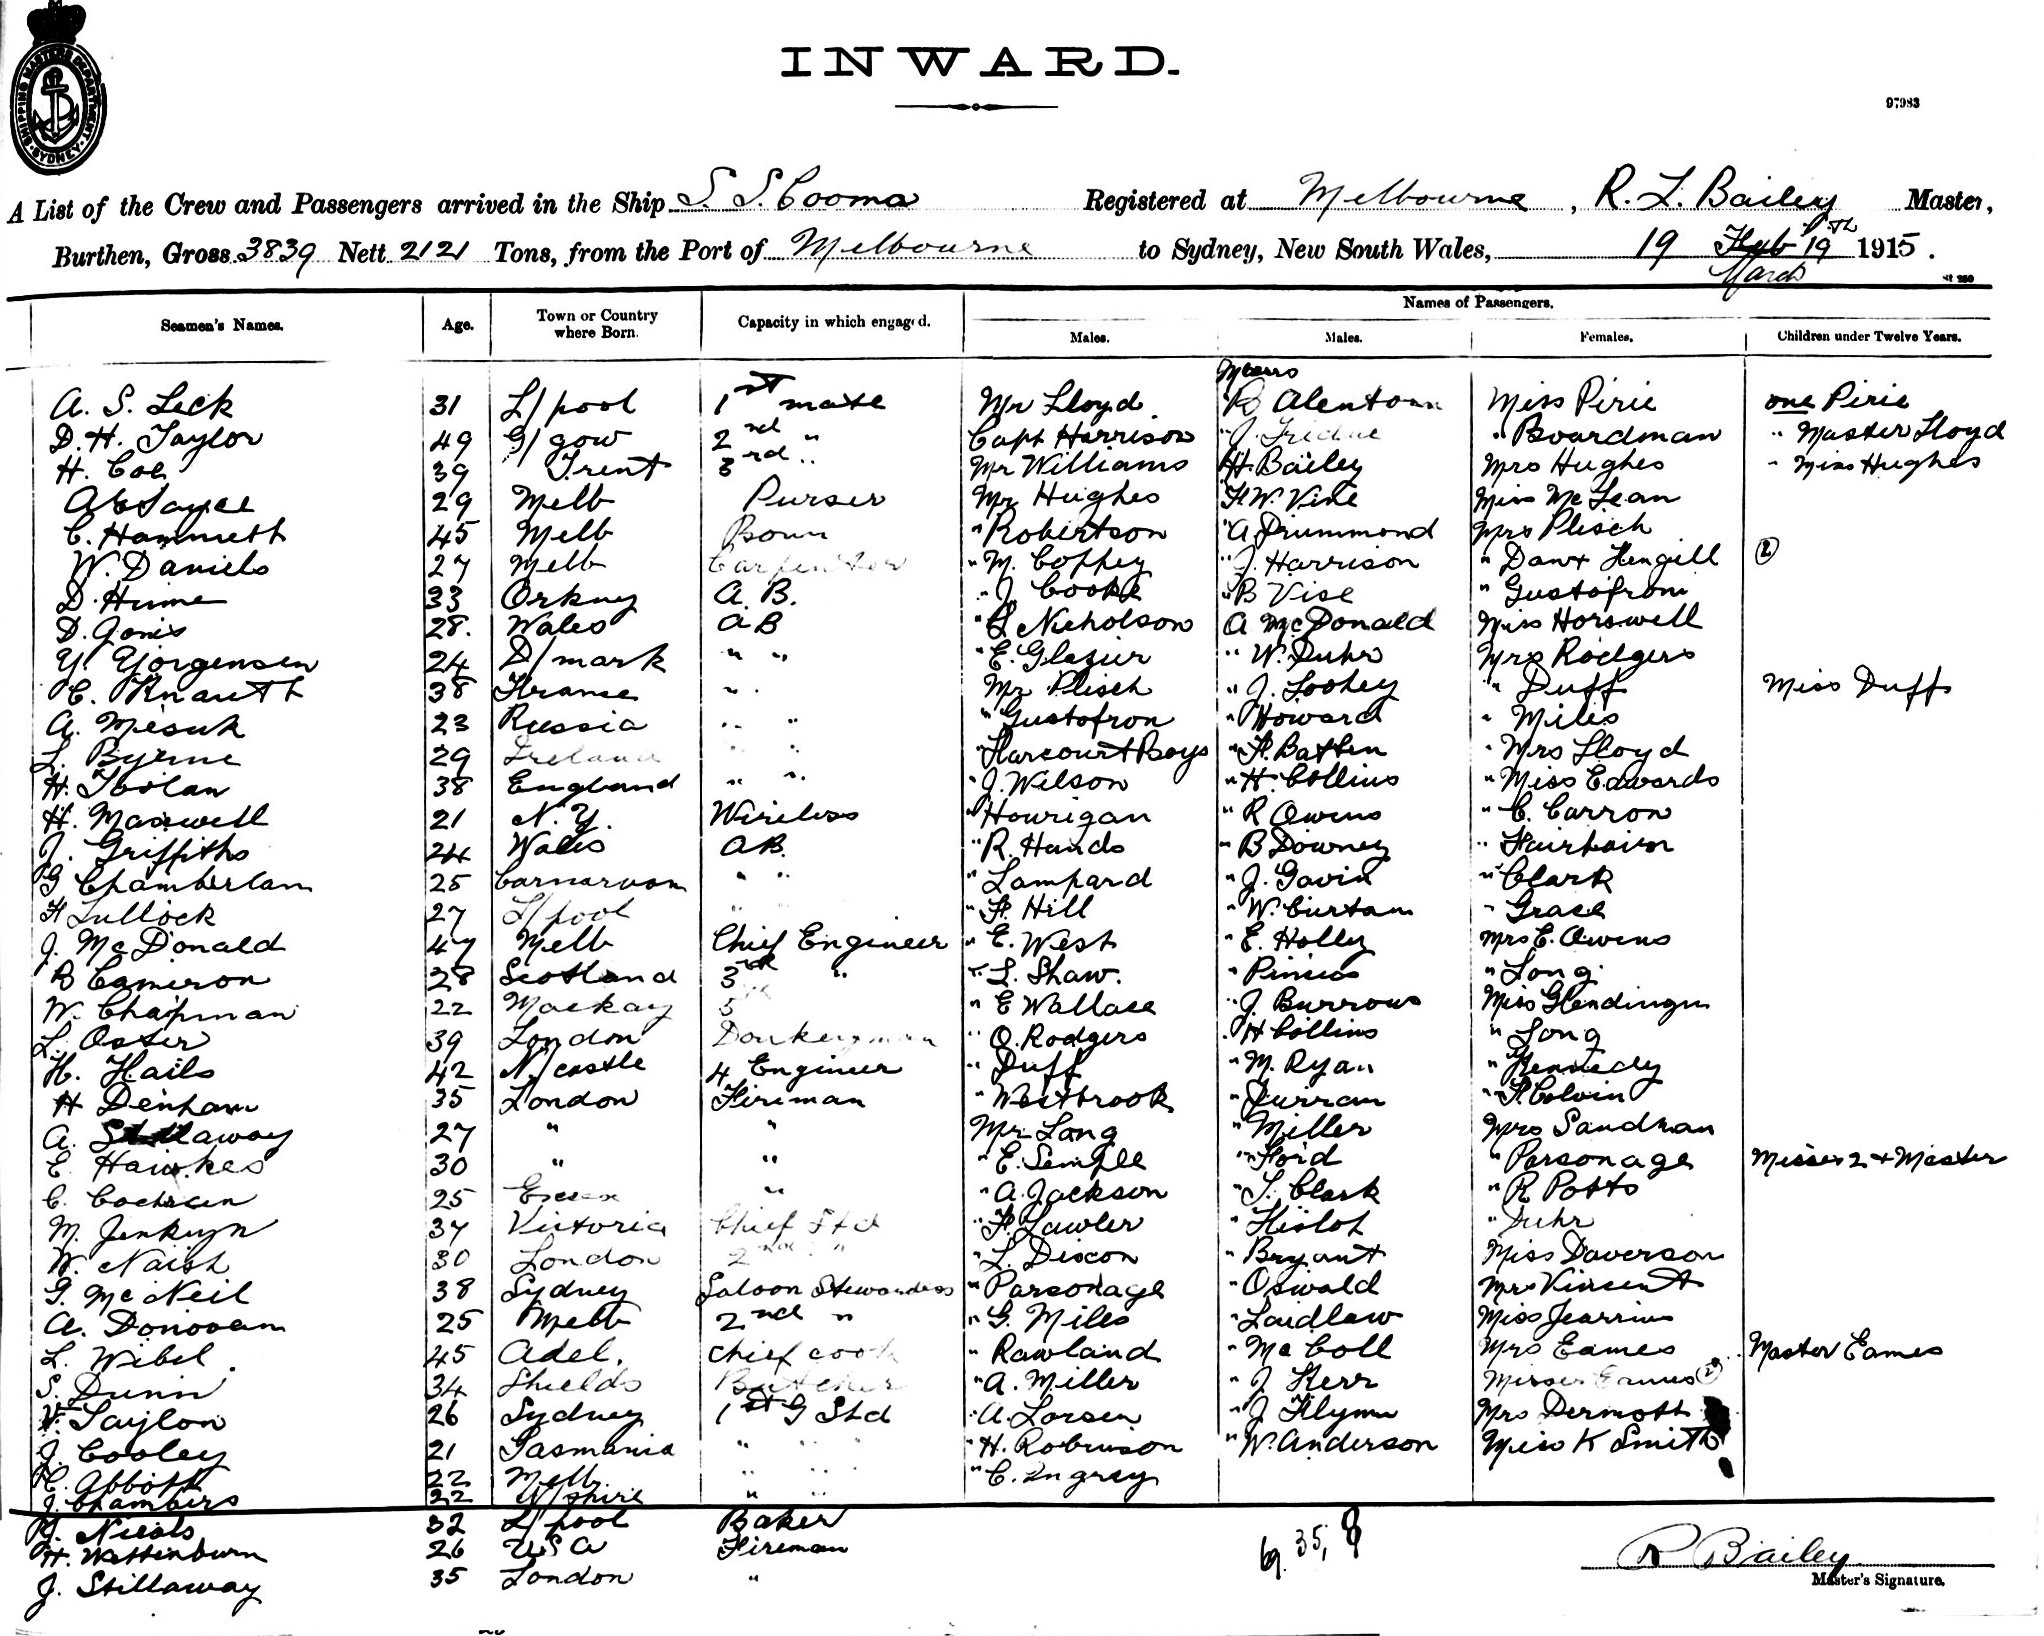 INWARD.
SHIPPING MASTERS DEPARTMENT SYDNEY
97983
A List of the Crew and Passengers arrived in the Ship S. S. Cooma Registered at Melbourne, R. L. Bailey Master,
Burthen, Gross 3839 Nett 2121 Tons, from the Port of Melbourne to Sydney, New South Wales, 19 Feb 19 1915.
March
Names of Passengers.
Seamen's Names. Age. Town or Country where Born. Capacity in which engaged. Males. Males. Females. Children under Twelve Years.
Messrs
A. S. Leck 31 L/pool 1st mate Mr Lloyd B Alentoun Miss Pirie one Pirie
D. H. Taylor 49 G/gow 2nd " Capt Harrison " J. " Boardman " Master Lloyd
H. Coe 39 Trent 3rd " Mr Williams H. Bailey Mrs Hughes " Miss Hughes
29 Melb Purser Mr Hughes F. W. Vine Miss McLean
C. Hammett 45 Melb Bosun " Robertson A Drummond Mrs Plisch
W. Daniels 27 Melb Carpenter " M. Coffey " J. Harrison " Daw + Hengill (2)
D. Hume 33 Orkney A. B. " J Cooke " B Vise " Gustofron
D. Jones 28. Wales A B " L Nicholson A McDonald Miss Horswell
Y. Yorgensen 24 D/mark " " " E. Glazier " W. Duhr Mrs Rodgers
C. Knautt 38 France " " Mr Plisch " J. Loohey " Duff Miss Duff
A. Mesuk 23 Russia " " " Gustofron " Howard " Miles
L. Byrne 29 Ireland " " " Harcourt Boys " F. Batten " Mrs Lloyd
H. Toolan 38 England " " " J. Wilson " H. Collins " Miss Edwards
H. Maxwell 21 N. Y. Wireless " Hourigan " R Owens " C. Carron
J. Griffiths 24 Wales A B. " R. Hands " B Downey " Fairbairn
G Chamberlain 25 Carnarvon " " " Lampard " J. Gavin " Clark
F Tullock 27 L/pool " " " F. Hill " W. Curtain " Grace
J. McDonald 47 Melb Chief Engineer " E. West " E. Holly Mrs C. Owens
B Cameron 28 Scotland 3rd " " L. Shaw. " Pinius " Long
W. Chapman 22 Mackay 5th " E Wallace " J. Burrows Miss Glendingn
L. Oster 39 London Donkeyman " O. Rodgers " H Collins " Long
H. Hails 42 N/castle 4 Engineer " Duff " M. Ryan " Kennedy
H Denham 35 London Fireman " Westbrook " Curran " F. Colvin
A. Stillaway 27 " " Mr Long " Miller Mrs Sandman
E. Hawkes 30 " " " E. Semple " Ford " Parsonage Misses 2 + Master
C. Cochran 25 Essex " " A. Jackson " S. Clark " R Potts
M. Jenkyn 37 Victoria Chief Std " F. Lawler " Hislop " Duhr
W. Naish 30 London 2nd " " L. Discon " Bryant Miss Daverson
G. McNeil 38 Sydney Saloon Stewardess " Parsonage " Oswald Mrs Vincent
A. Donovan 25 Melb 2nd " " G. Miles " Laidlaw Miss Jearrius
L. Wibel. 45 Adel. Chief cook " Rawland " McColl Mrs Eames " Master Eames
S. Dunn 34 Shields Butcher " A. Miller " J Kerr Misses Eames (2)
V. Taylor 26 Sydney 1st G Std " A. Lorsen " J Flynn Mrs Dermott
J. Cooley 21 Tasmania " " " H. Robinson " W. Anderson Miss K Smith
C. Abbott 22 Melb. " " " C. Ingrey
J. Chambers 22 W/shire " "
Y. Nicols 32 L/pool Baker
H. Wattenburn 26 U S A Fireman
J. Stillaway 35 London "
69. 35, 8
R Bailey
Master's Signature.